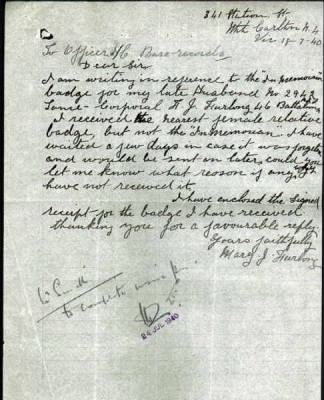 341 Station St
Nth Carlton N. 4
Vic 18-7-40
To Officer I/C Base-records
Dear Sir
I am writing in reference to the "In Memoriam"
badge for my late Husband No 2943
Lance-Corporal H. J. Furlong 46 Battalion
I received the nearest female relative
badge, but not the "In Memoriam". I have
waited a few days in case it was forgotten
and would be sent on later, could you
let me know what reason if any, I
have not received it.
I have enclosed the signed
receipt for the badge I have received
thanking you for a favourable reply.
Yours faithfully
Mary J. Furlong
to
24 JUL 1940